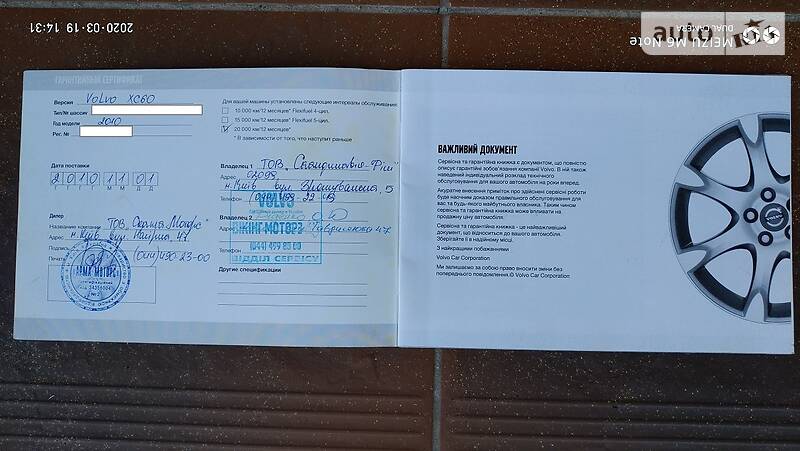 2020·03·19 14:31
MEIZU M6 Note
DUAL CAMERA
auto
ГАРАНТИЙНЫЙ СЕРТИФИКАТ
Версия Volvo XC60
Тип/№ шасси
Год модели 2010
Рег. №
Дата поставки
2 0 1 0 1 1 0 1
Г Г Г Г М М Д Д
Дилер
Название компании
Адрес м. Київ вул.
Подпись
Печать (044) 490-23-00
АРМА МОТОРС
Для вашей машины установлены следующие интервалы обслуживания:
10 000 км/12 месяцев* Flexifuel 4-цил.
15 000 км/12 месяцев* Flexifuel 5-цил.
20 000 км/12 месяцев*
* В зависимости от того, что наступит раньше
Владелец 1 ТОВ
Адрес 02098
м. Київ вул. 5
Телефон
Владелец 2
Адрес 47
Телефон
VOLVO
ВІКІНГ-МОТОРЗ
(044) 499 85 00
ВІДДІЛ СЕРВІСУ
Другие спецификации
ВАЖЛИВИЙ ДОКУМЕНТ
Сервісна та гарантійна книжка є документом, що повністю
описує гарантійні зобов'язання компанії Volvo. В ній також
наведений індивідуальний розклад технічного
обслуговування для вашого автомобіля на роки вперед.
Акуратне внесення приміток про здійснені сервісні роботи
буде наочним доказом правильного обслуговування для
вас та будь-якого майбутнього власника. Таким чином
сервісна та гарантійна книжка може впливати на
продажну ціну автомобіля.
Сервісна та гарантійна книжка - це найважливіший
документ, що відноситься до вашого автомобіля.
Зберігайте її в надійному місці.
З найкращими побажаннями
Volvo Car Corporation
Ми залишаємо за собою право вносити зміни без
попереднього повідомлення. © Volvo Car Corporation